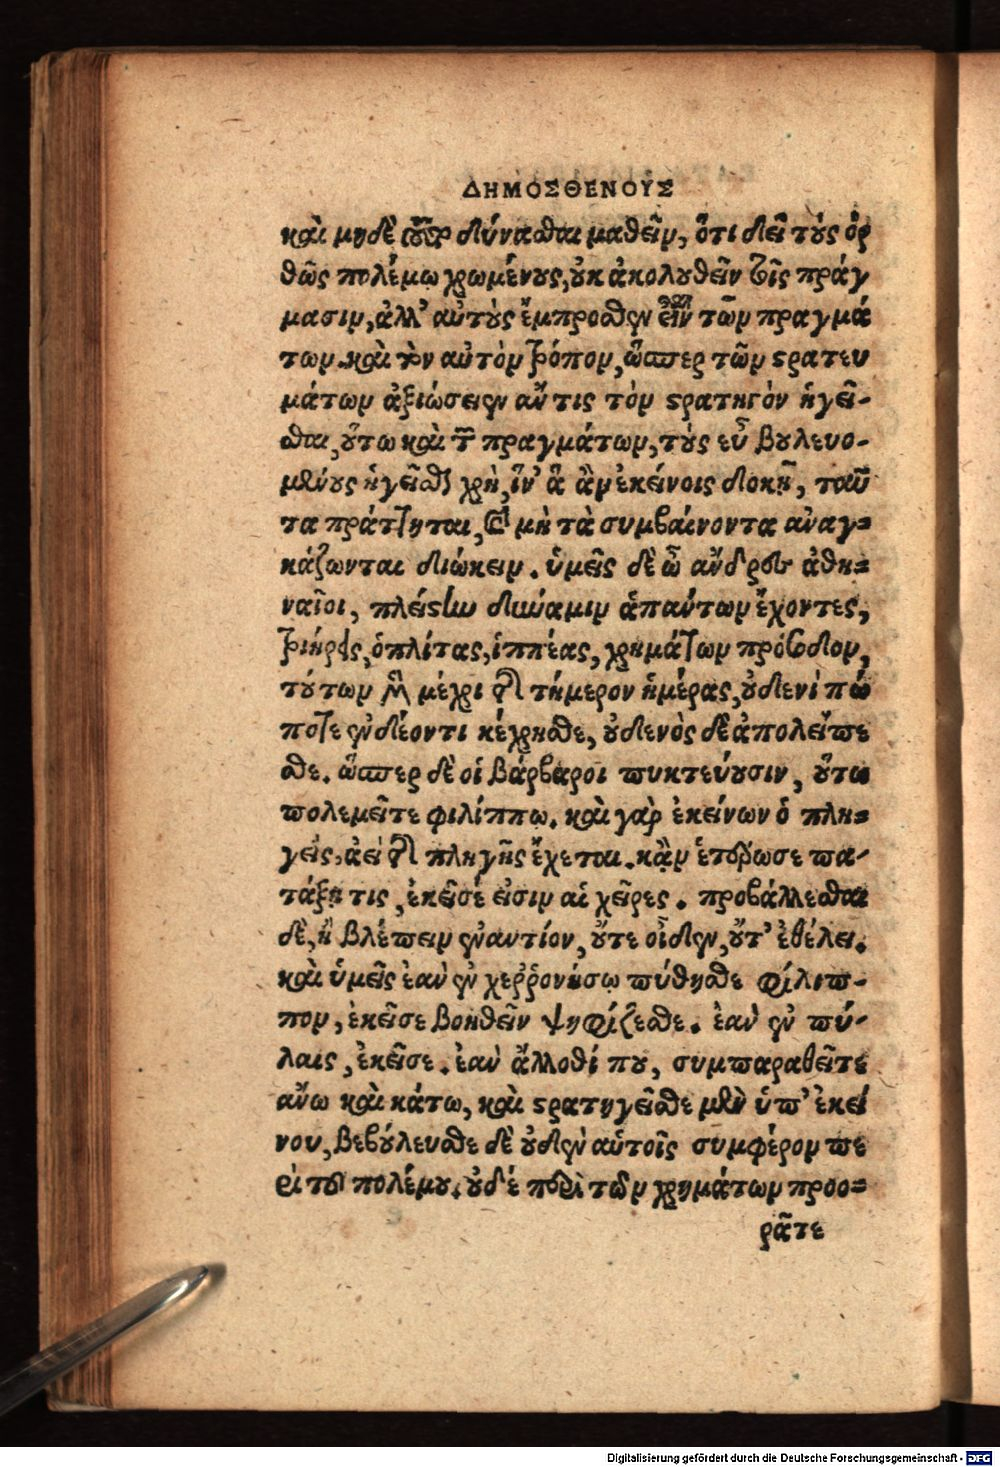 ΔΗΜΟΣΘΕΝΟΥΣ
καὶ μηδὲ τοῦτο δύνασθαι μαθεῖν, ὅτι δεῖ τοὺς ὀρ
θῶς πολέμω χρωμένους, οὐκ ἀκολουθεῖν τοῖς πράγ
μασιν, ἀλλ' αὐτοὺς ἔμπροσθεν εἶναι τῶν πραγμά
των. καὶ τὸν αὐτὸν τρόπον, ὥσπερ τῶν στρατευ
μάτων ἀξιώσειεν ἄν τις τὸν στρατηγὸν ἡγεῖ-
σθαι, οὕτω καὶ τῶν πραγμάτων, τοὺς εὖ βουλευο-
μένους ἡγεῖσθαι χρὴ, ἵν' ἃ ἂν ἐκείνοις δοκῇ, ταῦ
τα πράττηται, καὶ μὴ τὰ συμβαίνοντα ἀναγ=
κάζωνται διώκειν. ὑμεῖς δὲ ὦ ἄνδρες ἀθη=
ναῖοι, πλείστην δύναμιν ἁπάντων ἔχοντες,
τριήρεις, ὁπλίτας, ἱππέας, χρημάτων πρόσοδον,
τούτων μὲν μέχρι τῆς τήμερον ἡμέρας, οὐδενὶ πώ
ποτε ἐν δέοντι κέχρησθε, οὐδενὸς δὲ ἀπολείπε
σθε. ὥσπερ δὲ οἱ βάρβαροι πυκτεύουσιν, οὕτω
πολεμεῖτε φιλίππω. καὶ γὰρ ἐκείνων ὁ πλη=
γεὶς, ἀεὶ τῆς πληγῆς ἔχεται. κἂν ἑτέρωσε πα-
τάξῃ τις, ἐκεῖσέ εἰσιν αἱ χεῖρες. προβάλλεσθαι
δὲ, ἢ βλέπειν ἐναντίον, οὔτε οἶδεν, οὔτ' ἐθέλει.
καὶ ὑμεῖς ἐὰν ἐν χεῤῥονήσῳ πύθησθε φίλιπ-
πον, ἐκεῖσε βοηθεῖν ψηφίζεσθε. ἐὰν ἐν πύ-
λαις, ἐκεῖσε. ἐὰν ἄλλοθί που, συμπαραθεῖτε
ἄνω καὶ κάτω, καὶ στρατηγεῖσθε μὲν ὑπ' ἐκεί
νου, βεβούλευσθε δὲ οὐδὲν αὐτοῖς συμφέρον πε
ρὶ τοῦ πολέμου. οὐδέ περὶ τῶν χρημάτων προο=
ρᾶτε
Digitalisierung gefördert durch die Deutsche Forschungsgemeinschaft - DFG